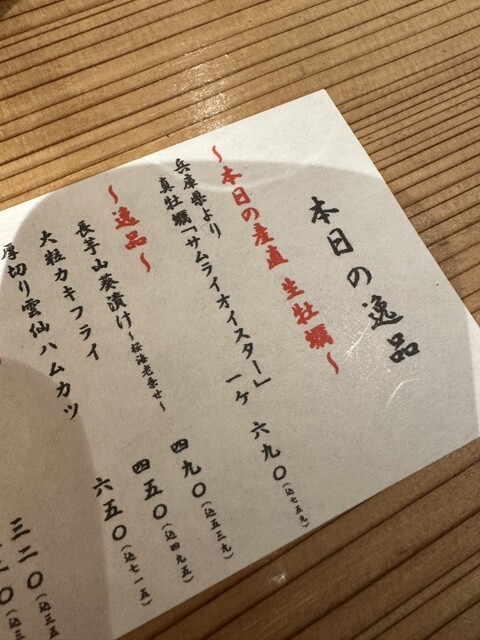 本日の逸品
〜本日の産直 生牡蠣〜
兵庫県より
真牡蠣「サムライオイスター」 一ケ 六九〇(込七五九)
〜逸品〜
長芋山葵漬け〜桜海老乗せ〜 四九〇(込五三九)
大粒カキフライ 四五〇(込四九五)
厚切り雲仙ハムカツ 六五〇(込七一五)
三二〇(込三五
〇(込三